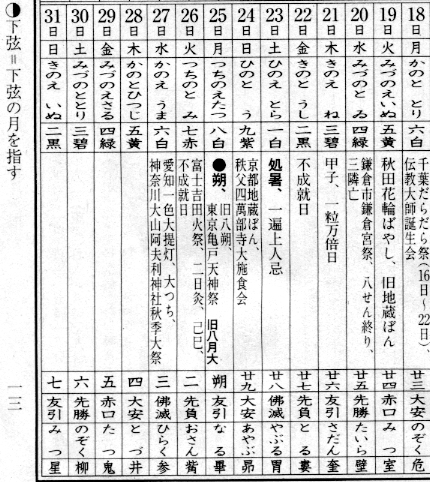 18日 月 かのと とり 六白 千葉だらだら祭(16日〜22日)、
伝教大師誕生会 廿三 大安 のぞく 危
19日 火 みづのえいぬ 五黄 秋田花輪ばやし、旧地蔵ぼん 廿四 赤口 みつ 室
20日 水 みづのと ゐ 四緑 鎌倉市鎌倉宮祭、八せん終り、
三隣亡 廿五 先勝 たいら 壁
21日 木 きのえ ね 三碧 甲子、一粒万倍日 廿六 友引 さだん 奎
22日 金 きのと うし 二黒 不成就日 廿七 先負 とる 婁
23日 土 ひのえ とら 一白 処暑、一遍上人忌 廿八 佛滅 やぶる 胃
24日 日 ひのと う 九紫 京都地蔵ぼん、
秩父四萬部寺大施食会 廿九 大安 あやぶ 昴
25日 月 つちのえたつ 八白 ●朔、旧八朔、
東京亀戸天神祭 旧八月大 朔 友引 なる 畢
26日 火 つちのと み 七赤 富士吉田火祭、二日灸、己巳、
不成就日 二 先負 おさん 觜
27日 水 かのえ うま 六白 愛知一色大提灯、大つち、
神奈川大山阿夫利神社秋季大祭 三 佛滅 ひらく 参
28日 木 かのとひつじ 五黄 四 大安 とづ 井
29日 金 みづのえさる 四緑 五 赤口 たつ 鬼
30日 土 みづのととり 三碧 六 先勝 のぞく 柳
31日 日 きのえ いぬ 二黒 七 友引 みつ 星
◑下弦=下弦の月を指す
一三